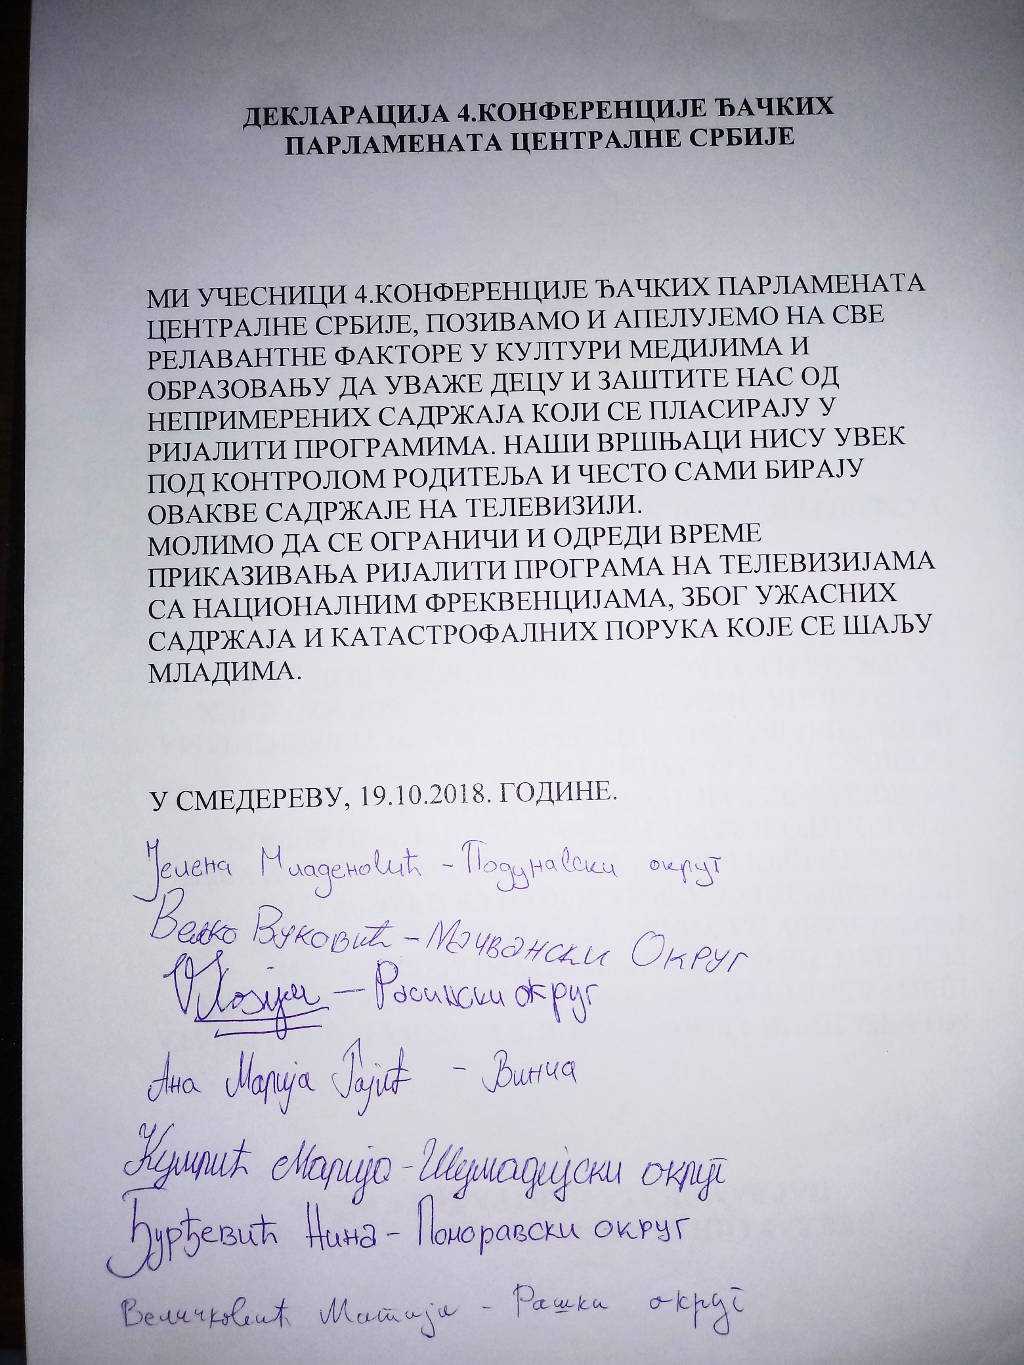 ДЕКЛАРАЦИЈА 4.КОНФЕРЕНЦИЈЕ ЂАЧКИХ
ПАРЛАМЕНАТА ЦЕНТРАЛНЕ СРБИЈЕ
МИ УЧЕСНИЦИ 4.КОНФЕРЕНЦИЈЕ ЂАЧКИХ ПАРЛАМЕНАТА
ЦЕНТРАЛНЕ СРБИЈЕ, ПОЗИВАМО И АПЕЛУЈЕМО НА СВЕ
РЕЛАВАНТНЕ ФАКТОРЕ У КУЛТУРИ МЕДИЈИМА И
ОБРАЗОВАЊУ ДА УВАЖЕ ДЕЦУ И ЗАШТИТЕ НАС ОД
НЕПРИМЕРЕНИХ САДРЖАЈА КОЈИ СЕ ПЛАСИРАЈУ У
РИЈАЛИТИ ПРОГРАМИМА. НАШИ ВРШЊАЦИ НИСУ УВЕК
ПОД КОНТРОЛОМ РОДИТЕЉА И ЧЕСТО САМИ БИРАЈУ
ОВАКВЕ САДРЖАЈЕ НА ТЕЛЕВИЗИЈИ.
МОЛИМО ДА СЕ ОГРАНИЧИ И ОДРЕДИ ВРЕМЕ
ПРИКАЗИВАЊА РИЈАЛИТИ ПРОГРАМА НА ТЕЛЕВИЗИЈАМА
СА НАЦИОНАЛНИМ ФРЕКВЕНЦИЈАМА, ЗБОГ УЖАСНИХ
САДРЖАЈА И КАТАСТРОФАЛНИХ ПОРУКА КОЈЕ СЕ ШАЉУ
МЛАДИМА.
У СМЕДЕРЕВУ, 19.10.2018. ГОДИНЕ.
Јелена Младеновић - Подунавски округ
Вељко Вуковић - Мачвански Округ
— Расински округ
Ана Марија Гајић - Винча
Марија - Шумадијски округ
Ђурђевић Нина - Поморавски округ
Величковић Матија - Рашки округ